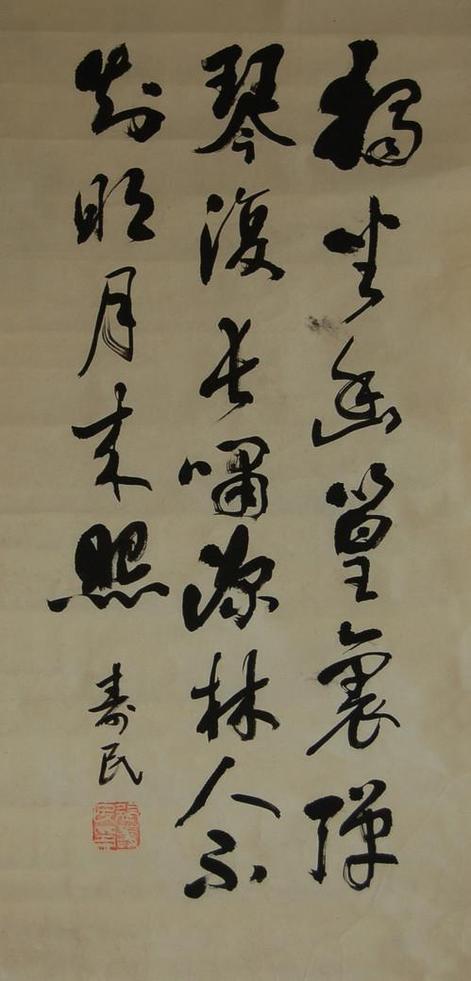 獨坐幽篁裏彈
琴復長嘯深林人不
知明月来照
壽民